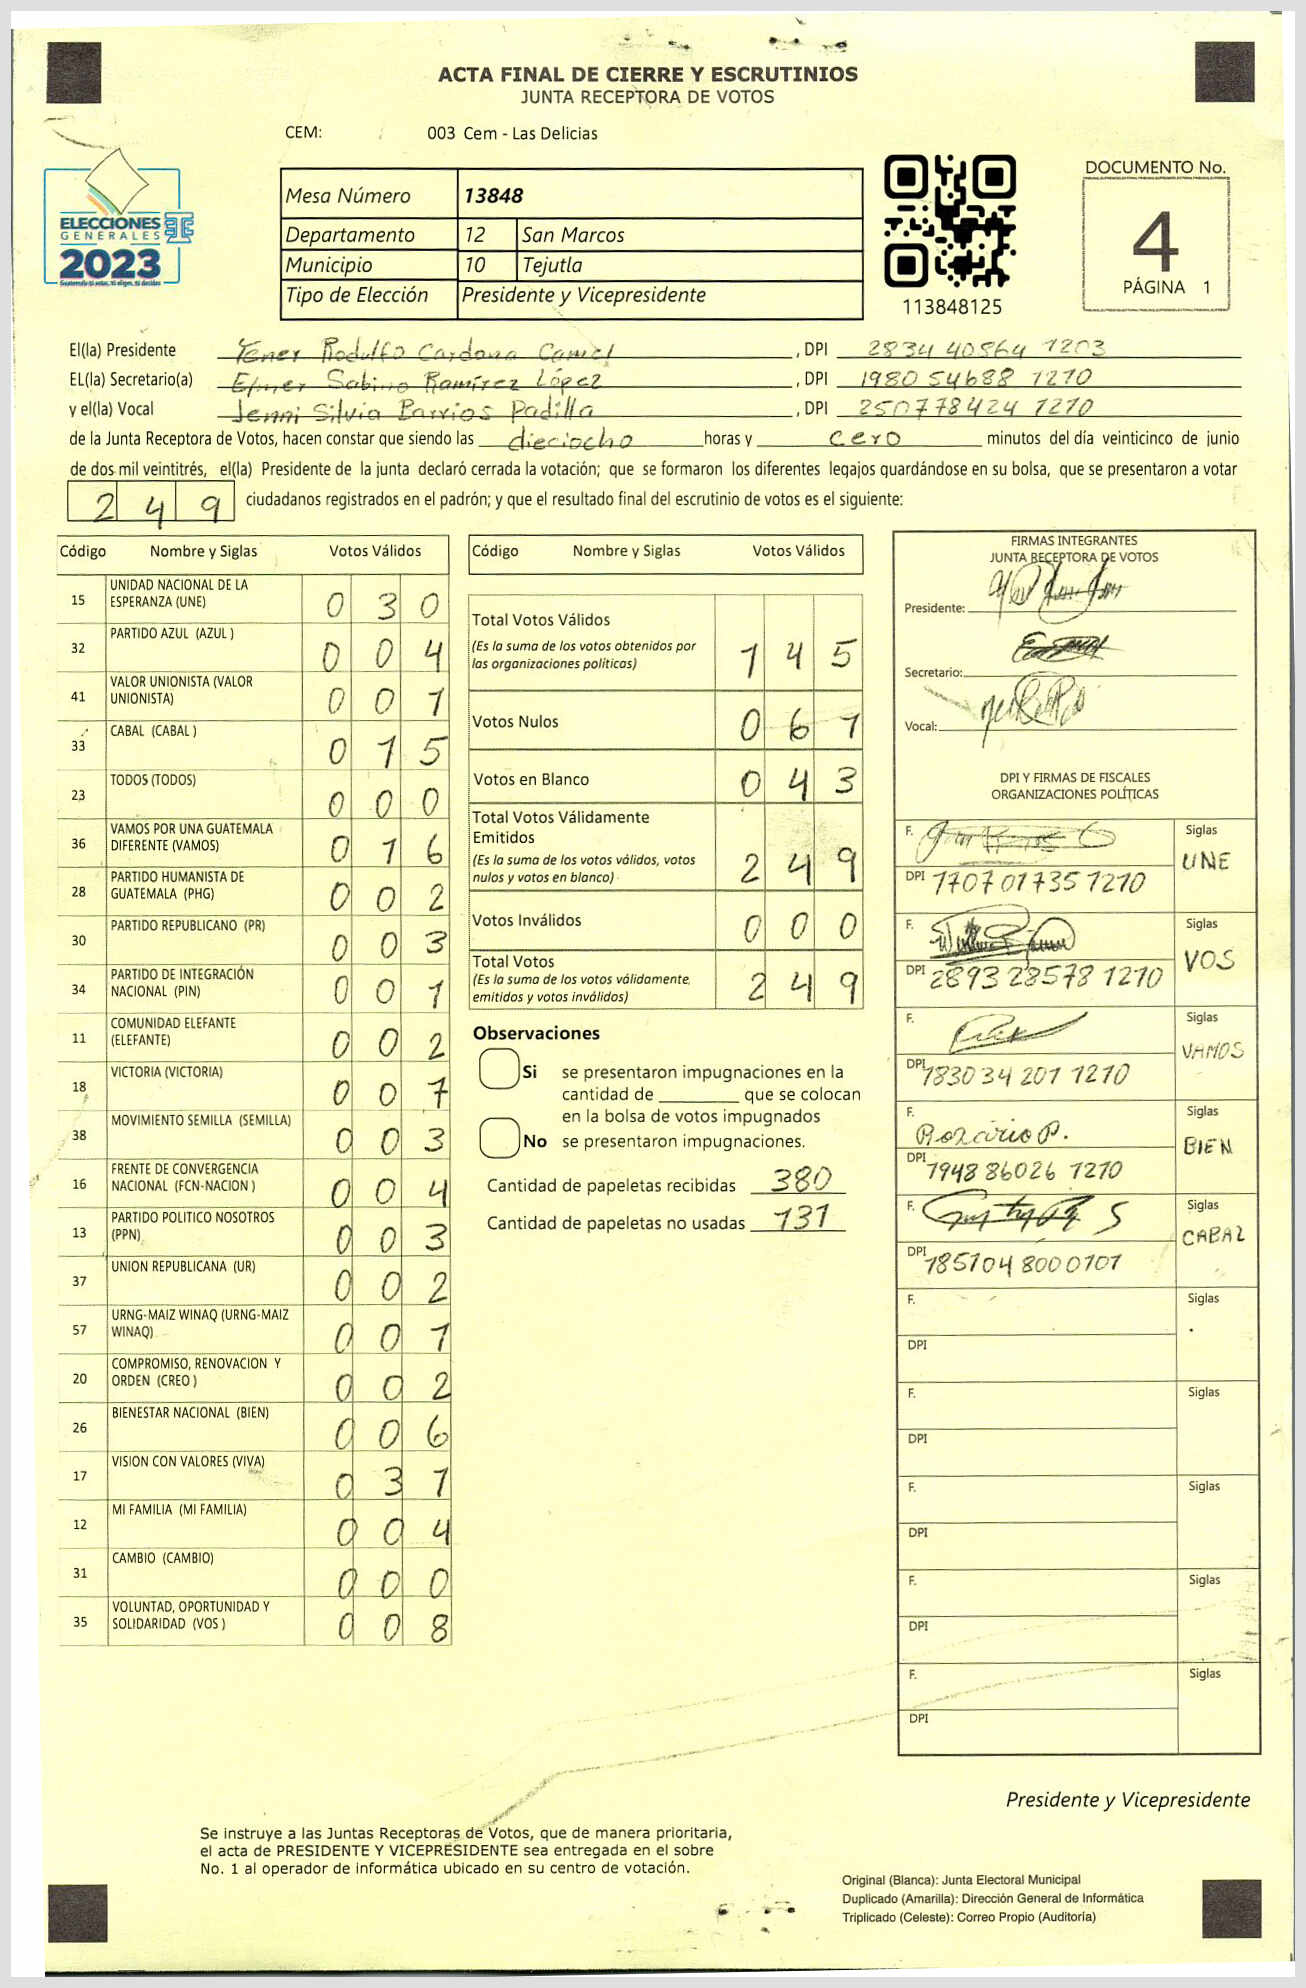 ACTA FINAL DE CIERRE Y ESCRUTINIOS
JUNTA RECEPTORA DE VOTOS
CEM: 003 Cem - Las Delicias
ELECCIONES
GENERALES
2023
Mesa Número 13848
Departamento 12 San Marcos
Municipio 10 Tejutla
Tipo de Elección Presidente y Vicepresidente
113848125
DOCUMENTO No.
4
PÁGINA 1
El(la) Presidente Yener Rodulfo Cardona , DPI 2834 40564 1203
EL(la) Secretario(a) Elmer Sabino Ramírez López , DPI 1980 54688 1210
y el(la) Vocal Jenni Silvia Barrios Padilla , DPI 250778424 1210
de la Junta Receptora de Votos, hacen constar que siendo las dieciocho horas y cero minutos del día veinticinco de junio
de dos mil veintitrés, el(la) Presidente de la junta declaró cerrada la votación; que se formaron los diferentes legajos quardándose en su bolsa, que se presentaron a votar
249 ciudadanos registrados en el padrón; y que el resultado final del escrutinio de votos es el siguiente:
Código Nombre y Siglas Votos Válidos
15 UNIDAD NACIONAL DE LA ESPERANZA (UNE) 030
32 PARTIDO AZUL (AZUL ) 004
41 VALOR UNIONISTA (VALOR UNIONISTA) 001
33 CABAL (CABAL ) 015
23 TODOS (TODOS) 000
36 VAMOS POR UNA GUATEMALA DIFERENTE (VAMOS) 016
28 PARTIDO HUMANISTA DE GUATEMALA (PHG) 002
30 PARTIDO REPUBLICANO (PR) 003
34 PARTIDO DE INTEGRACIÓN NACIONAL (PIN) 001
11 COMUNIDAD ELEFANTE (ELEFANTE) 002
18 VICTORIA (VICTORIA) 007
38 MOVIMIENTO SEMILLA (SEMILLA) 003
16 FRENTE DE CONVERGENCIA NACIONAL (FCN-NACION ) 004
13 PARTIDO POLITICO NOSOTROS (PPN) 003
37 UNION REPUBLICANA (UR) 002
57 URNG-MAIZ WINAQ (URNG-MAIZ WINAQ) 001
20 COMPROMISO, RENOVACION Y ORDEN (CREO ) 002
26 BIENESTAR NACIONAL (BIEN) 006
17 VISION CON VALORES (VIVA) 031
12 MI FAMILIA (MI FAMILIA) 004
31 CAMBIO (CAMBIO) 000
35 VOLUNTAD, OPORTUNIDAD Y SOLIDARIDAD (VOS ) 008
Código Nombre y Siglas Votos Válidos
Total Votos Válidos
(Es la suma de los votos obtenidos por
las organizaciones políticas) 145
Votos Nulos 061
Votos en Blanco 043
Total Votos Válidamente
Emitidos
(Es la suma de los votos válidos, votos
nulos y votos en blanco) 249
Votos Inválidos 000
Total Votos
(Es la suma de los votos válidamente
emitidos y votos inválidos) 249
Observaciones
Si se presentaron impugnaciones en la
cantidad de ________ que se colocan
en la bolsa de votos impugnados
No se presentaron impugnaciones.
Cantidad de papeletas recibidas 380
Cantidad de papeletas no usadas 131
FIRMAS INTEGRANTES
JUNTA RECEPTORA DE VOTOS
Presidente:
Secretario:
Vocal:
DPI Y FIRMAS DE FISCALES
ORGANIZACIONES POLÍTICAS
F. Siglas
UNE
DPI 1707017351210
F. Siglas
VOS
DPI 2893 28578 1210
F. Siglas
VAMOS
DPI 183034201 1210
F. Rozario P. Siglas
BIEN
DPI 1948 86026 1210
F. Siglas
CABAL
DPI 1851048000101
F. Siglas
DPI
F. Siglas
DPI
F. Siglas
DPI
F. Siglas
DPI
F. Siglas
DPI
Presidente y Vicepresidente
Se instruye a las Juntas Receptoras de Votos, que de manera prioritaria,
el acta de PRESIDENTE Y VICEPRESIDENTE sea entregada en el sobre
No. 1 al operador de informática ubicado en su centro de votación.
Original (Blanca): Junta Electoral Municipal
Duplicado (Amarilla): Dirección General de Informática
Triplicado (Celeste): Correo Propio (Auditoría)